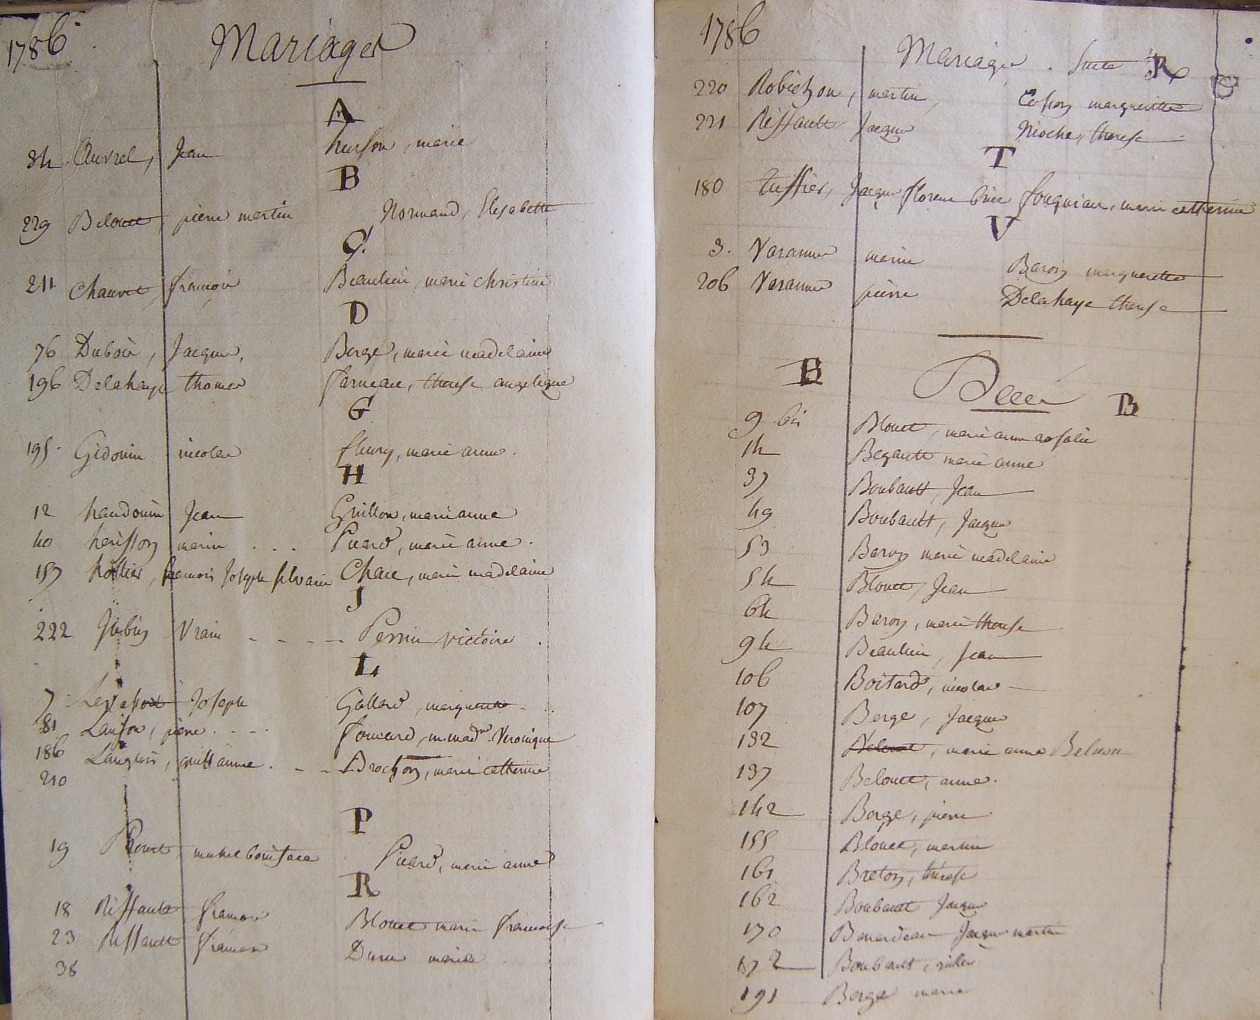 1786
Mariages
A
84 Auvret, Jean husson, marie
B
229 Belouet, pierre martin Normand, Elisabette
C
211 Chauvet françois Beaulieu, marie christine
D
76 Dubois, Jacques, Berge, marie madelaine
196 Delahaye thomas farneau, therese angelique
G
195 Gidouin nicolas fleury, marie anne.
H
12 haudouin Jean Guillon, marie anne
40 herisson marin Picard, marie anne.
157 hollier, francois Joseph silvain Chace, marie madelaine
J
222 Vrain Perrin victoire
L
7 Levassort Joseph Gallard, marguerite
81 Lanson, pierre foucard, m. madne. Veronique
186 Langlois, guillaume marie catherine
210
P
19 michel boniface Picard, marie anne
R
18 Riffault francois Blouet marie francoise
23 Riffault francois Duru marie
38
1786
Mariages. Suite R
220 martin, marguerite
221 Riffault Jacques Mioche, therese
T
180 tessier, Jacques florent brice fouqueau, marie catherine
V
3. Varanne marin Baron marguerite
206 Varanne pierre Delahaye therese
B Décés B
9 bis Blouet, marie anne rosalie
14 Begault marie anne
37 Boubault, Jean
49 Boubault, Jacques
53 Baron marie madelaine
54 Blouet, Jean
64 Baron, marie therese
94 Beaulieu, Jean
106 Boitard, nicolas
107 Berge, Jacques
132 marie anne
137 Belouet, anne.
142 Berge, pierre
155 Blouet, martin
161 Breton, therese
162 Boubault Jacques
170 Jacques martin
172 Boubault,
191 Berge marie